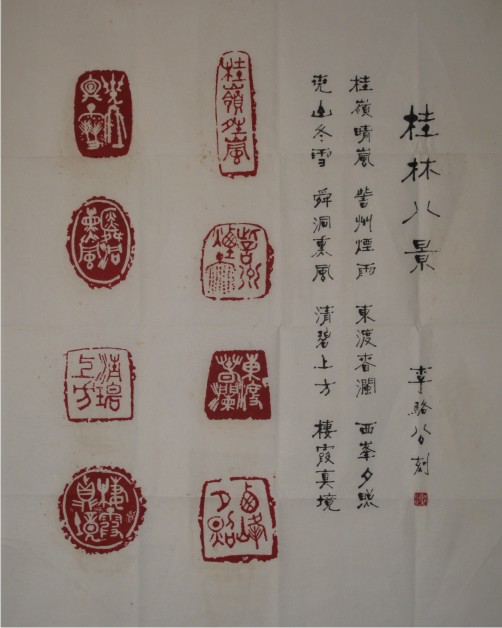 桂林八景 李駱公刻
桂嶺晴嵐 訾州煙雨 東渡春瀾 西峯夕照
堯山冬雪 舜洞熏風 清碧上方 棲霞真境
桂嶺晴嵐
訾州煙雨
東渡春瀾
西峰夕照
堯山冬雪
舜洞熏風
清碧上方
棲霞真境